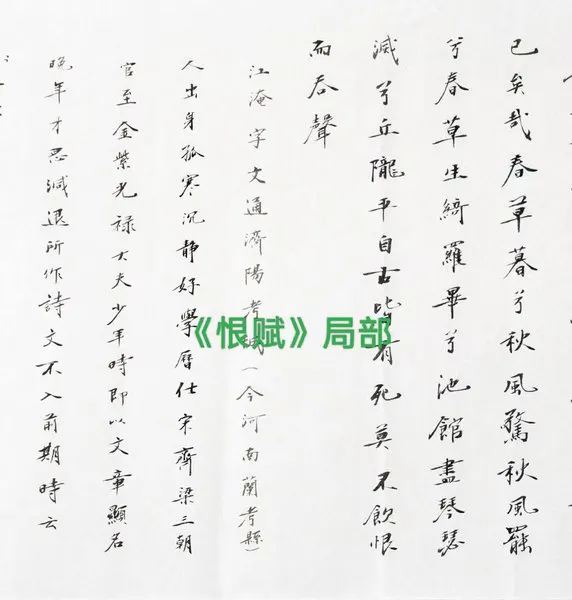 已矣哉春草暮兮秋風驚秋風罷
兮春草生綺羅畢兮池館盡琴瑟
滅兮丘隴平自古皆有死莫不飲恨
而吞聲
江淹字文通濟陽考城(今河南蘭考縣)
人出身孤寒沉静好學曆仕宋齊梁三朝
官至金紫光禄大夫少年時即以文章顯名
晚年才思減退所作詩文不入前期時云
《恨赋》局部